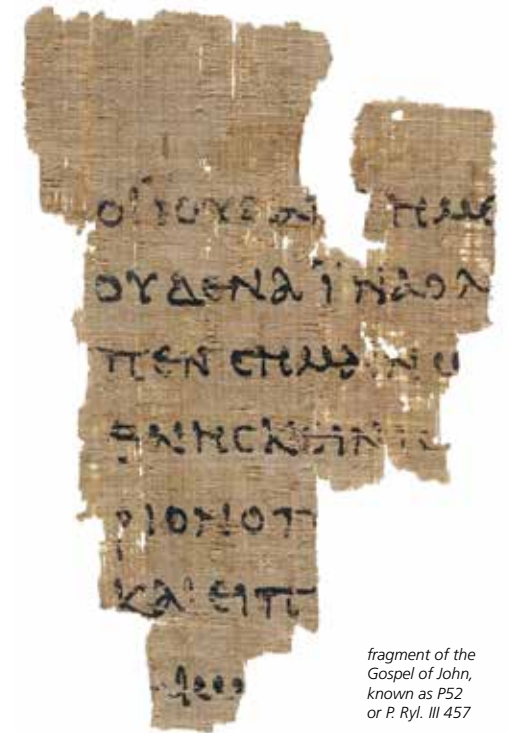 ΟΙ ΙΟΥΔΑΙ ΗΜΕ
ΟΥΔΕΝΑ ΪΝΑ Ο Λ
ΠΕΝ CΗΜΑΙΝΩ
ΘΝΗCΚΕΙΝ ΙC
ΡΙΟΝ Ο Π
ΚΑΙ ΕΙΠ
fragment of the
Gospel of John,
known as P52
or P. Ryl. III 457